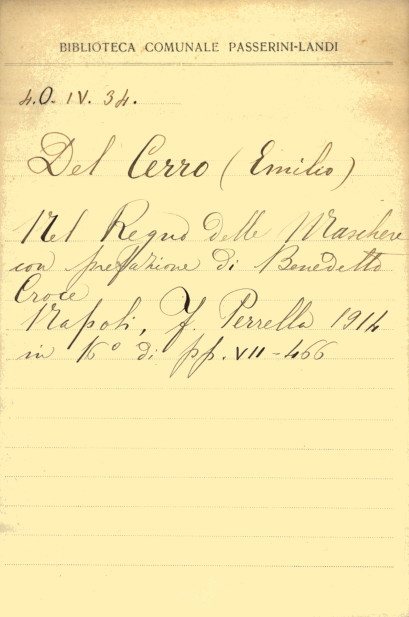 BIBLIOTECA COMUNALE PASSERINI-LANDI
4.O.IV.34.
Del Cerro (Emilio)
Nel Regno delle Maschere
con prefazione di Benedetto
Croce
Napoli, F. Perrella 1914
in 16° di pp. VII-466